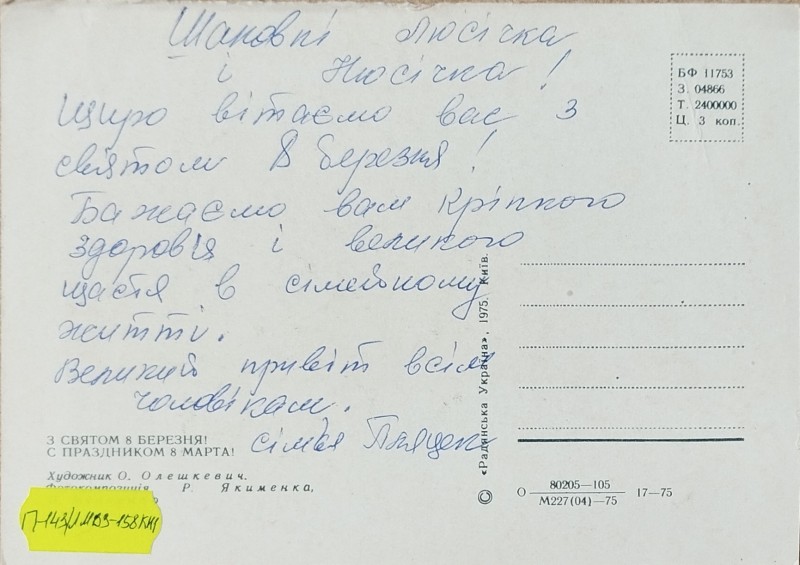 Шановні Люсічка
і Нюсічка!
Щиро вітаємо вас з
святом 8 березня!
Бажаємо вам кріпкого
здоровія і великого
щастя в сімейному
житті.
Великий привіт всім
чоловікам.
сімія
З СВЯТОМ 8 БЕРЕЗНЯ!
С ПРАЗДНИКОМ 8 МАРТА!
Художник О. Олешкевич.
Фотокомпозиція Р. Якименка,
БФ 11753
З. 04866
Т. 2400000
Ц. 3 коп.
© «Радянська Україна», 1975. Київ.
О 80205—105 17—75
М227(04)—75